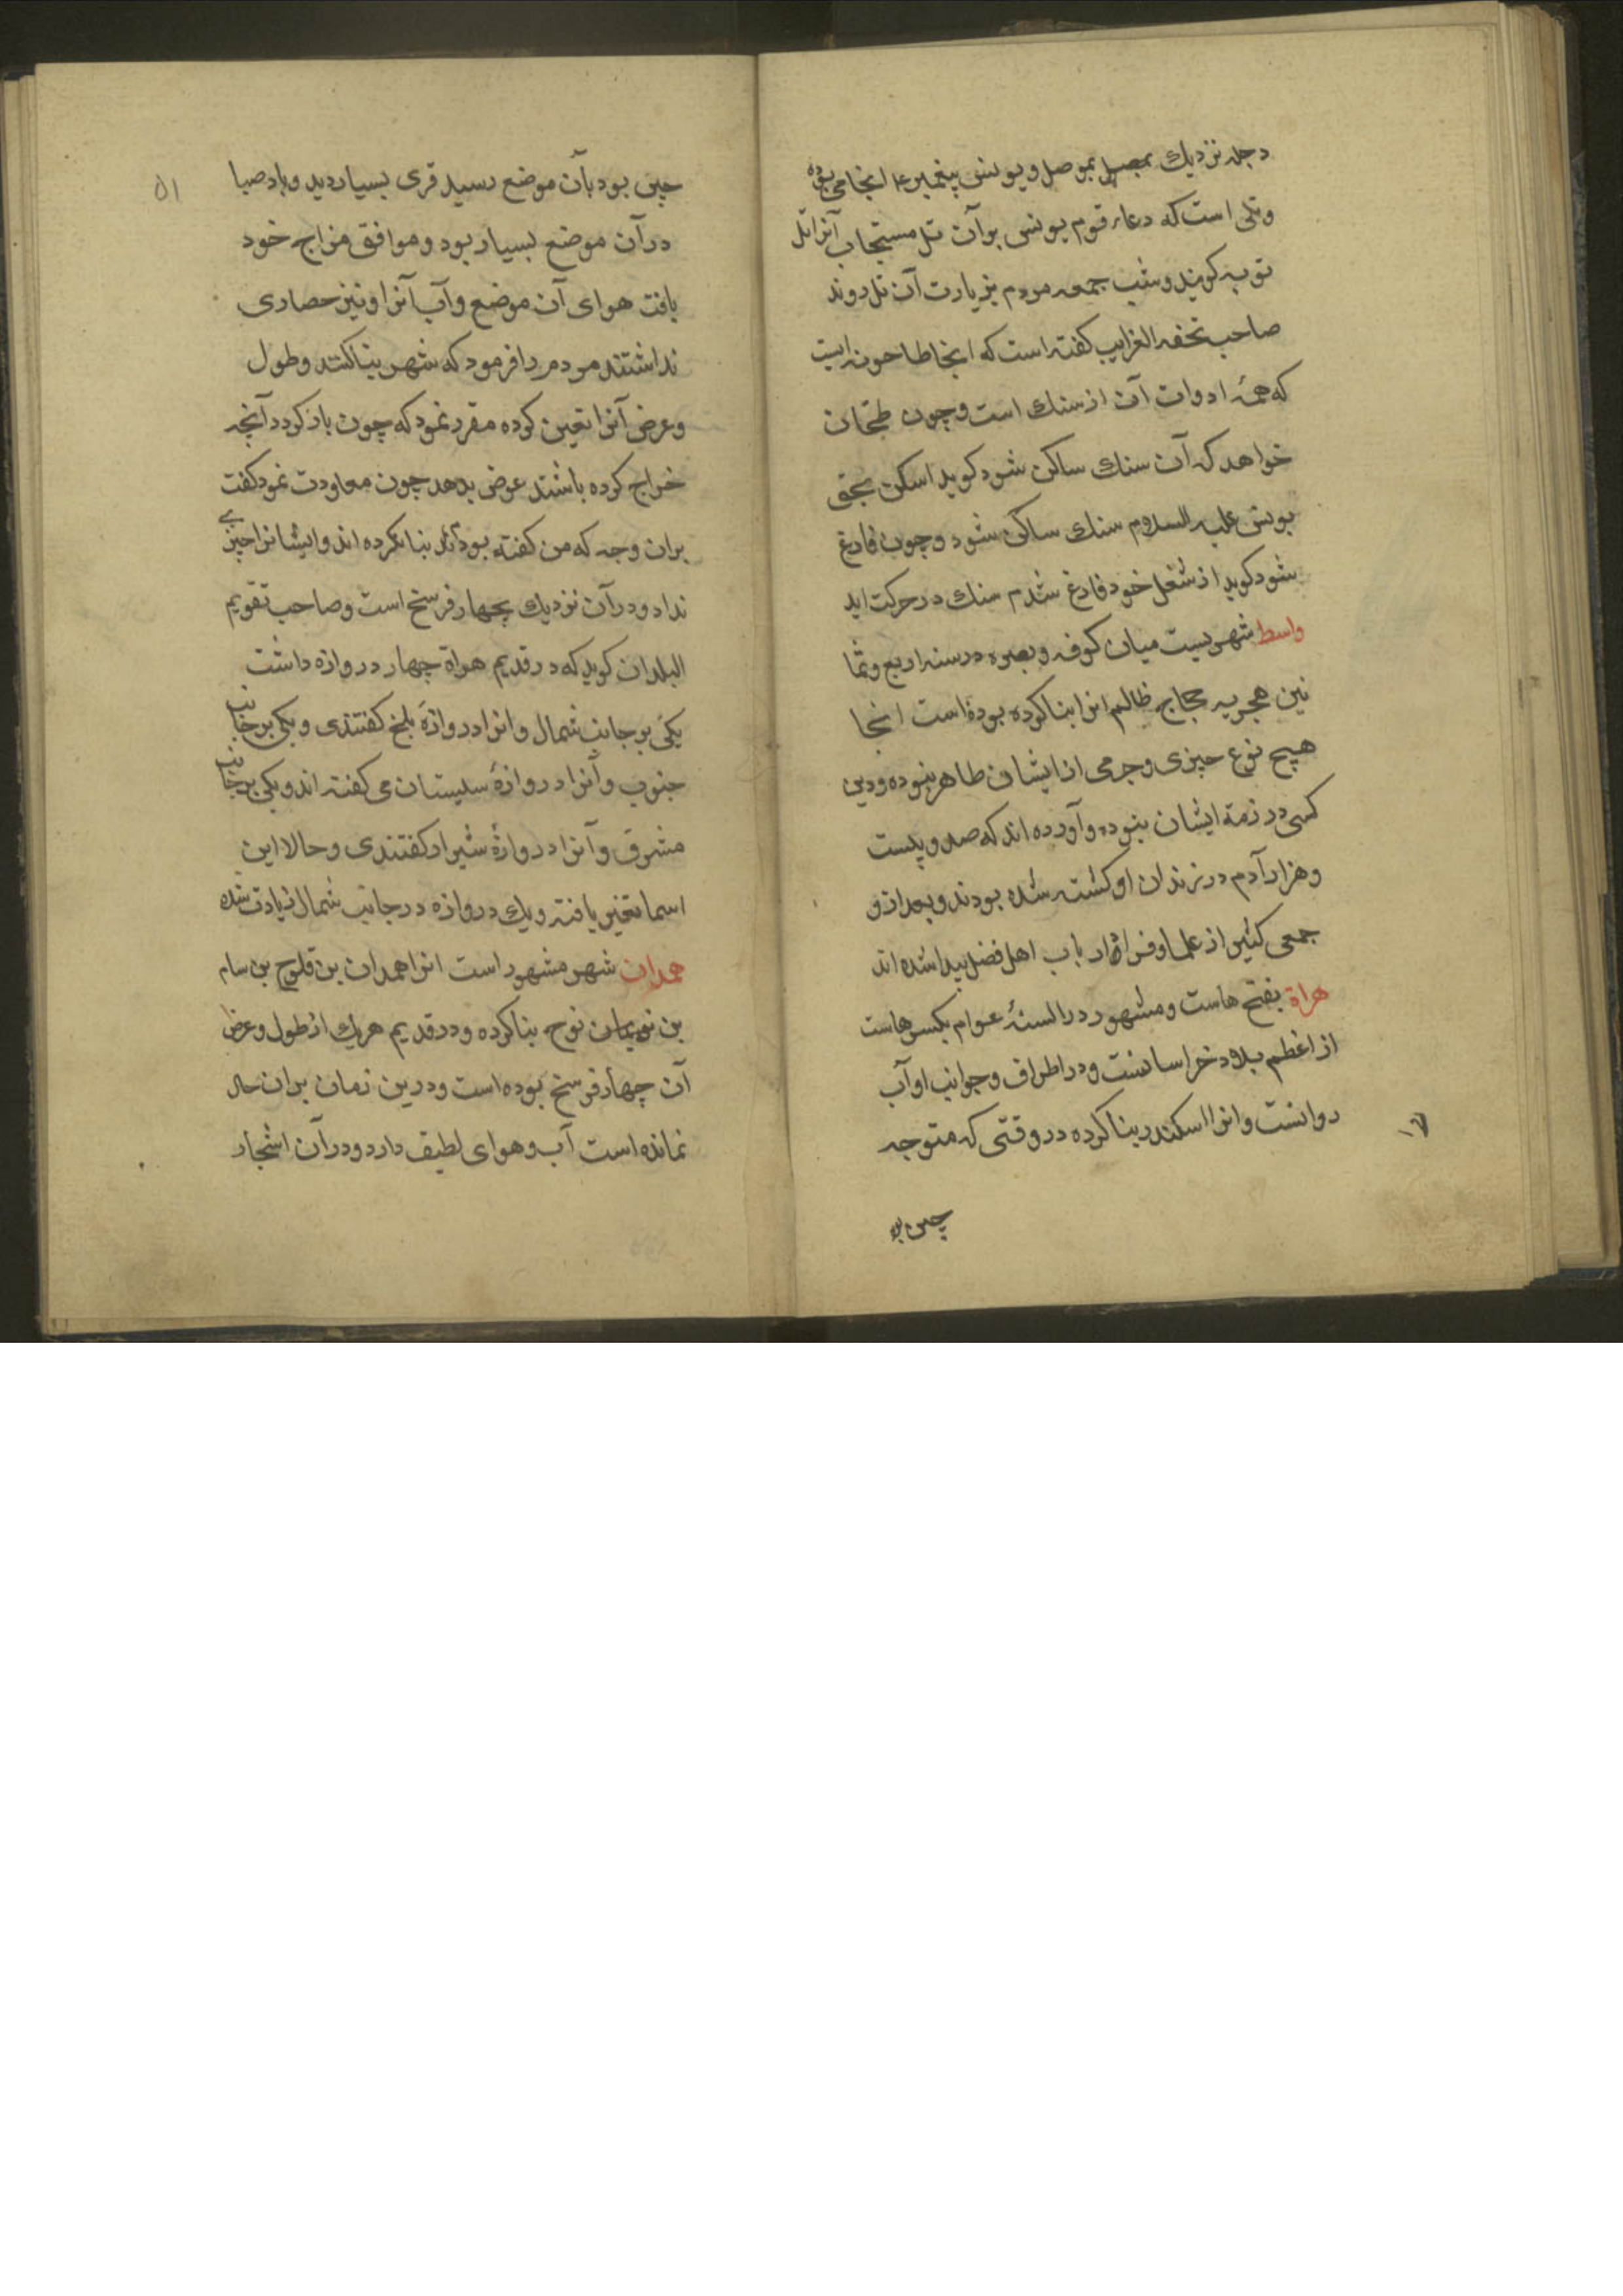 دجله نزدیك بموصل و یونس پیغمبر ع اینجا می بوده
و تلی است که دعاء قوم یونس بر آن تل مستجاب آنرا تل
توبه کویند و شب جمعه مردم بزیارت آن تل روند
صاحب تحفه الغرایب کفته است که اینجا طاحونه ایست
که همۀ ادوات آن از سنك است و چون طحان
خواهد که آن سنك ساکن شود کوید اسکن بحق
یونس علیه السلام سنك ساکن شود و چون فارغ
شود کوید از شغل خود فارغ شدم سنك در حرکت اید
واسط شهریست میان کوفه و بصره در سنه اربع و ثما
نین هجریه حجاج ظالم انرا بنا کرده بوده است اینجا
هیچ نوع چیزی و جرمی از ایشان ظاهر نبوده و دین
کسی در ذمة ایشان نبوده و آورده اند که صد و بیست
و هزار آدم در زندان او کشته شده بودند و بعد از و
جمعی کثیر از علما و فراء و ارباب اهل فضل پیدا شده اند
هراة بفتح هاست و مشهور در السنۀ عوام بکسر هاست
از اعظم بلاد خراسانست و در اطراف و جوانب او آب
روانست و انرا اسکندر بنا کرده در وقتی که متوجه
چین بود
۵۱
چین بود بآن موضع رسید قری بسیار دید و باد صبا
در آن موضع بسیار بود و موافق مزاج خود
یافت هوای آن موضع و آب آنرا و نیز حصاری
نداشتند مردم را فرمود که شهر بنا کنند و طول
و عرض آنرا تعین کرده مقرر نمود که چون باز کردد آنچه
خراج کرده باشند عوض بدهد چون معاودت نمود کفت
بران وجه که من کفته بودم بنا نکرده اند و ایشانرا چیزی
نداد و در آن نزدیك بچهار فرسخ است و صاحب تقویم
البلدان کوید که در قدیم هراة چهار دروازه داشت
یکی بر جانب شمال و انرا دروازۀ بلخ کفتندی و یکی بر جانب
جنوب و آنرا دروازۀ سیستان می کفته اند و یکی بر جانب
مشرق و آنرا دروازۀ شیراز کفتندی و حالا این
اسما تغیر یافته و یك دروازه در جانب شمال زیادت شده
همدان شهر مشهور است انرا همدان بن فلوج بن سام
بن نوح بنا کرده و در قدیم هریك از طول و عرض
آن چهار فرسخ بوده است و درین زمان بران حال
نمانده است آب و هوای لطیف دارد و در آن اشجار